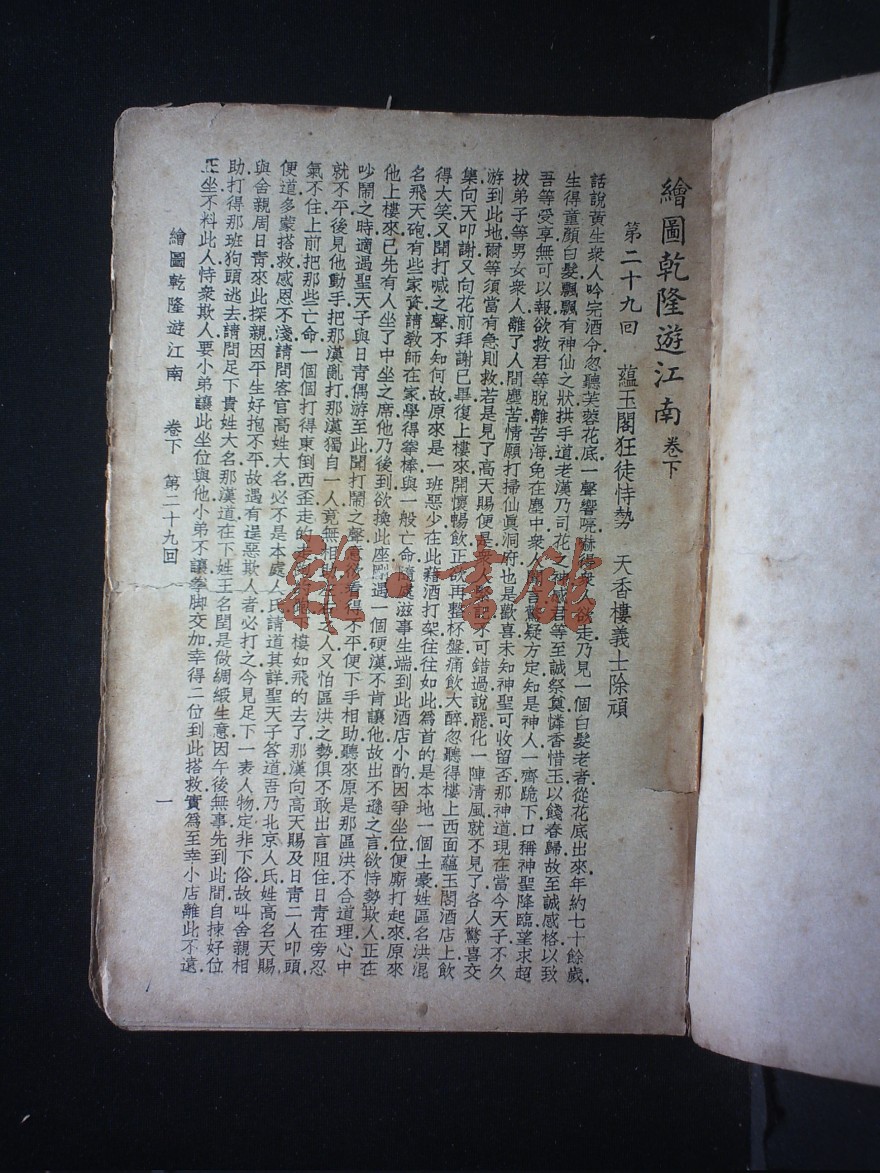 繪圖乾隆遊江南 卷下
第二十九回 蘊玉閣狂徒恃勢 天香樓義士除頑
話說黃生衆人吟完酒令忽聽芙蓉花底一聲響喨嚇得衆人欲走乃見一個白髮老者從花底出來年約七十餘歲
生得童顏白髮飄飄有神仙之狀拱手道老漢乃司花之神感君等至誠祭奠憐香惜玉以餞春歸故至誠感格以致
吾等受享無可以報欲救君等脫離苦海免在塵中衆人聞言驚疑方定知是神人一齊跪下口稱神聖降臨望求超
拔弟子等男女衆人離了人間塵苦情願打掃仙眞洞府也是歡喜未知神聖可收留否那神道現在當今天子不久
游到此地爾等須當有急則救若是見了高天賜便是衆人緊記不可錯過說罷化一陣清風就不見了各人驚喜交
集向天叩謝又向花前拜謝已畢復上樓來開懷暢飲正欲再整杯盤痛飲大醉忽聽得樓上西面蘊玉閣酒店上飲
得大笑又聞打喊之聲不知何故原來是一班惡少在此藉酒打架往往如此爲首的是本地一個土豪姓區名洪混
名飛天砲有些家資請教師在家學得拳棒與一般亡命隨處滋事生端到此酒店小酌因爭坐位便廝打起來原來
他上樓來已先有人坐了中坐之席他乃後到欲換此座剛遇一個硬漢不肯讓他故出不遜之言欲恃勢欺人正在
吵鬧之時適遇聖天子與日青偶游至此聞打鬧之聲意欲看得不平便下手相助聽來原是那區洪不合道理心中
就不平後見他動手把那漢亂打那漢獨自一人竟無相助之人又怕區洪之勢俱不敢出言阻住日青在旁忍
氣不住上前把那些亡命一個個打得東倒西歪走的走下樓如飛的去了那漢向高天賜及日青二人叩頭
便道多蒙搭救感恩不淺請問客官高姓大名必不是本處人氏請道其詳聖天子答道吾乃北京人氏姓高名天賜
與舍親周日青來此探親因平生好抱不平故遇有逞惡欺人者必打之今見足下一表人物定非下俗故叫舍親相
助打得那班狗頭逃去請問足下貴姓大名那漢道在下姓王名閏是做綢緞生意因午後無事先到此間自揀好位
正坐不料此人恃衆欺人要小弟讓此坐位與他小弟不讓拳脚交加幸得二位到此搭救實爲至幸小店離此不遠
繪圖乾隆遊江南 卷下 第二十九回 一
雜·書館